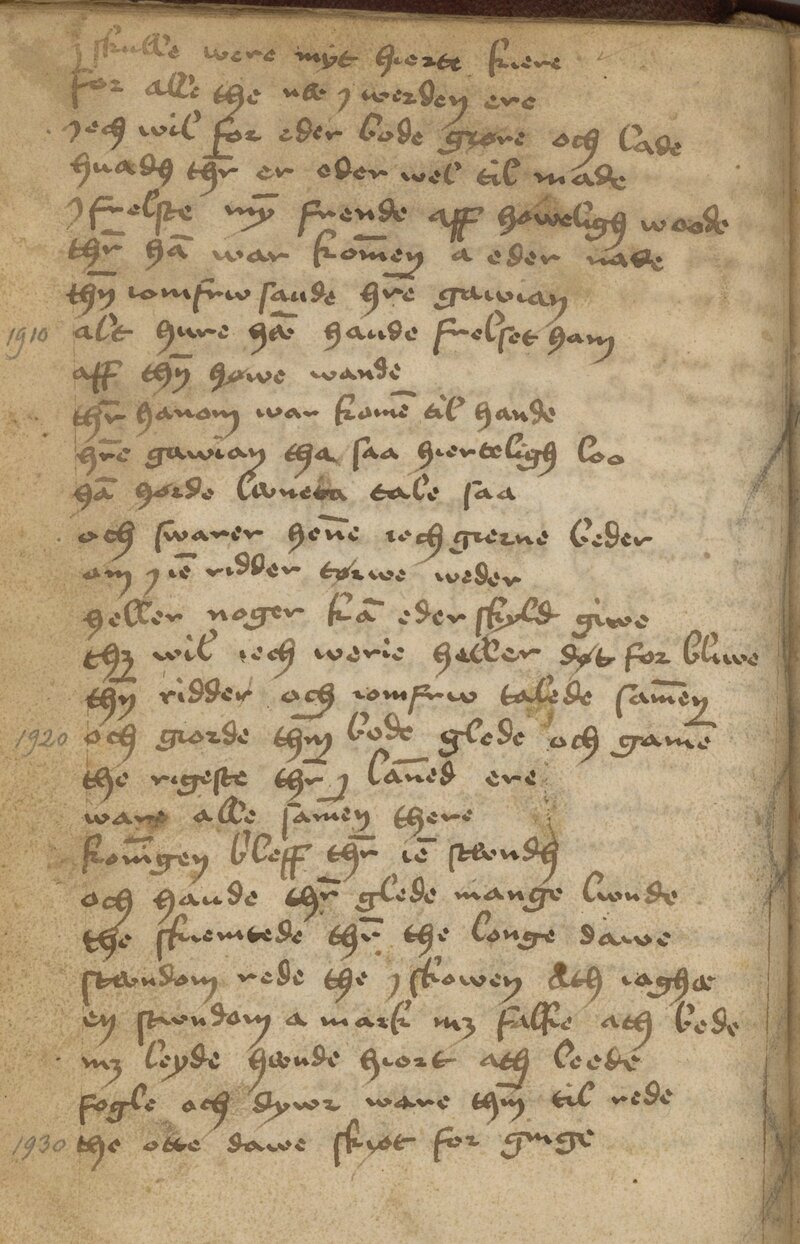 j skulle were myt hierte kiere
for alle the nw j werden ere
jech wil for eder bode giøre och lade
huadh thr̄ er eder wel til made
j frelste mȳ frende aff høweligh woode
thr̄ hā war kom̄en a eder nade
thn̄ iomfrw saude hr̄e gawian
1910 alt hure hā haude frelset ham
aff thn̄ høwe wande
thr̄ hanom war komē til hande
hr̄e gawian tha saa hierteligh loo
hā hørde lwneta tale saa
och swarer hen̄e iech gierne beder
om j iē ridder tørwe weder
heller noger kā eder skyld giwe
thꝫ wil iech werie heller døt for bliwe
thn̄ ridder och iomfrw talede sam̄en
1920 och giorde thm̄ bode glede och gamē
the rigeste thr̄ j lan̄ed ere
ware alle sam̄en there
kon̄īgen bleff thr̄ iē stwndh
och haude thr̄ glede mange lwnde
the skiemtede thr̄ the longe dawe
stwndom rede the j skowen ath iaghæ
en stwndom a mark mꝫ falke ath bede
mꝫ leyde hwnde hiort ath leede
fogle och dywr ware thm̄ til rede
1930 the otte dawe skiøt for ginge